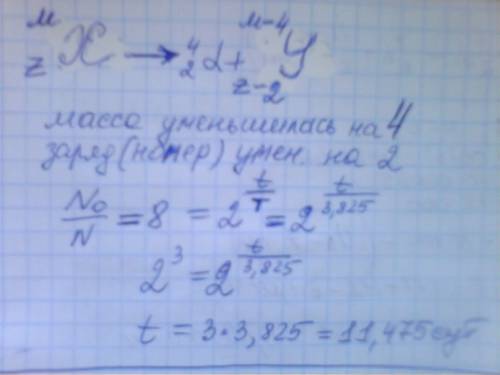 ᴹ_Z X → ⁴₂α + ᴹ⁻⁴_Z-2 Y
масса уменьшилась на 4
заряд (номер) умен. на 2
N₀/N = 8 = 2^(t/T) = 2^(t/3,825)
2³ = 2^(t/3,825)
t = 3·3,825 = 11,475 сут